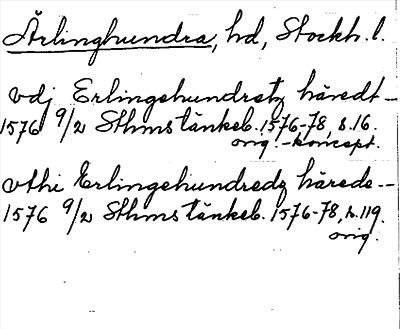 Ärlinghundra, hd, Stockh. l.
vdj Erlingehundretz häredt -
1576 9/2 Sthms tänkeb. 1576-78, s. 16.
orig.-koncept.
vthi Erlingehundredz härede --
1576 9/2 Sthms tänkeb. 1576-78, s. 119.
orig.